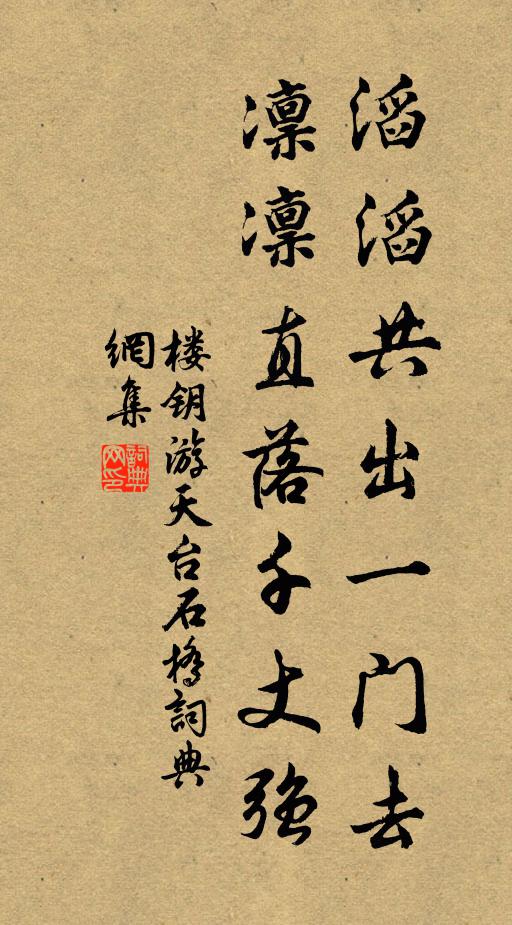 滔滔共出一门去
凛凛直落千丈强
楼钥游天台石桥詞典
網集
詞典網印